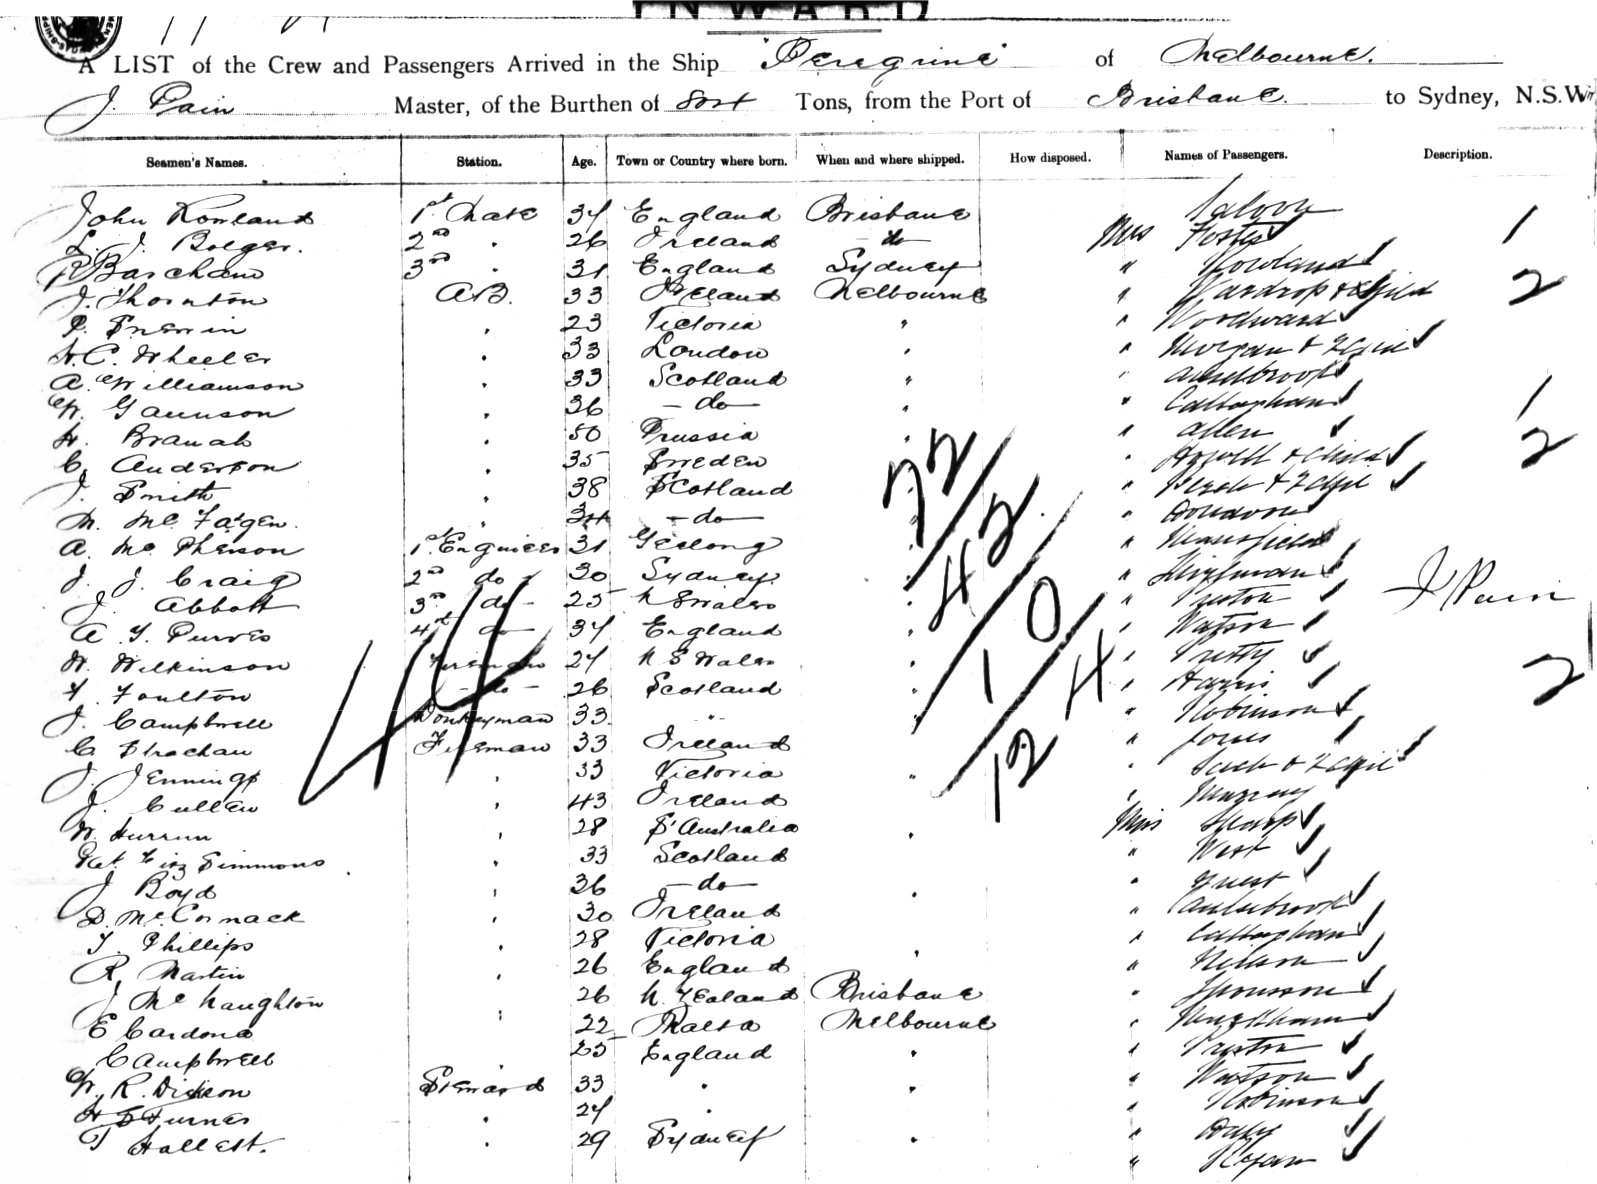 INWARD
A LIST of the Crew and Passengers Arrived in the Ship "Peregrine" of Melbourne.
J. Pain Master, of the Burthen of Tons, from the Port of Brisbane. to Sydney, N.S.W
Seamen's Names. Station. Age. Town or Country where born. When and where shipped. How disposed. Names of Passengers. Description.
Saloon
John Rowland 1st Mate 34 England Brisbane Mrs Foster 1
L. J. Bolger. 2nd " 26 Ireland - do " Rowland
R Barcham 3rd " 31 England Sydney " Wardrop & child 2
J. Thornton A.B. 33 Ireland Melbourne " Woodward
P. 23 Victoria " " Morgan &
H. C. Wheeler " 33 London " "
A. Williamson " 33 Scotland " " Callaghan 1
W. Gaunson " 36 - do - " " Allen
H. Branah " 50 Prussia " " & child 2
C. Anderson " 35 Sweden "
J. Smith " 38 Scotland " " Donavon
M. McFagen. " 34 - do - " " Mansfield
A. McPherson 1st Engineer 31 Geelong "
J. J. Craig 2nd do 30 Sydney " " Preston J Pain
J. Abbott 3rd do - 25 N S Wales " " Watson
A. Y. Purves 4th do 34 England " " Pretty
W. Wilkinson Fireman 24 N S Wales " " Harris 2
F. Foulton - do - 26 Scotland " " Robinson
J. Campbell Donkeyman 33 " " " Jones
C Strachan Fireman 33 Ireland "
J. Jennings " 33 Victoria " " Murray
J. Cullen " 43 Ireland Miss Sharp
W. " 28 S' Australia " " West
Pat. Fitz Simmons " 33 Scotland " Guest
J Boyd " 36 - do - " "
D. McCormack " 30 Ireland " Callaghan
T. Phillips " 28 Victoria " " Nilson
R. Martin " 26 England "
J. McNaughton " 26 N. Zealand Brisbane " Markham
E Cardona " 22 Malta Melbourne " Preston
Campbell " 25 England " " Watson
W. R. Dickson Steward 33 " " " Robinson
H S Turner " 24 " " Daly
T Hallett. " 29 Sydney " " Ryan
44
72
42
10
124